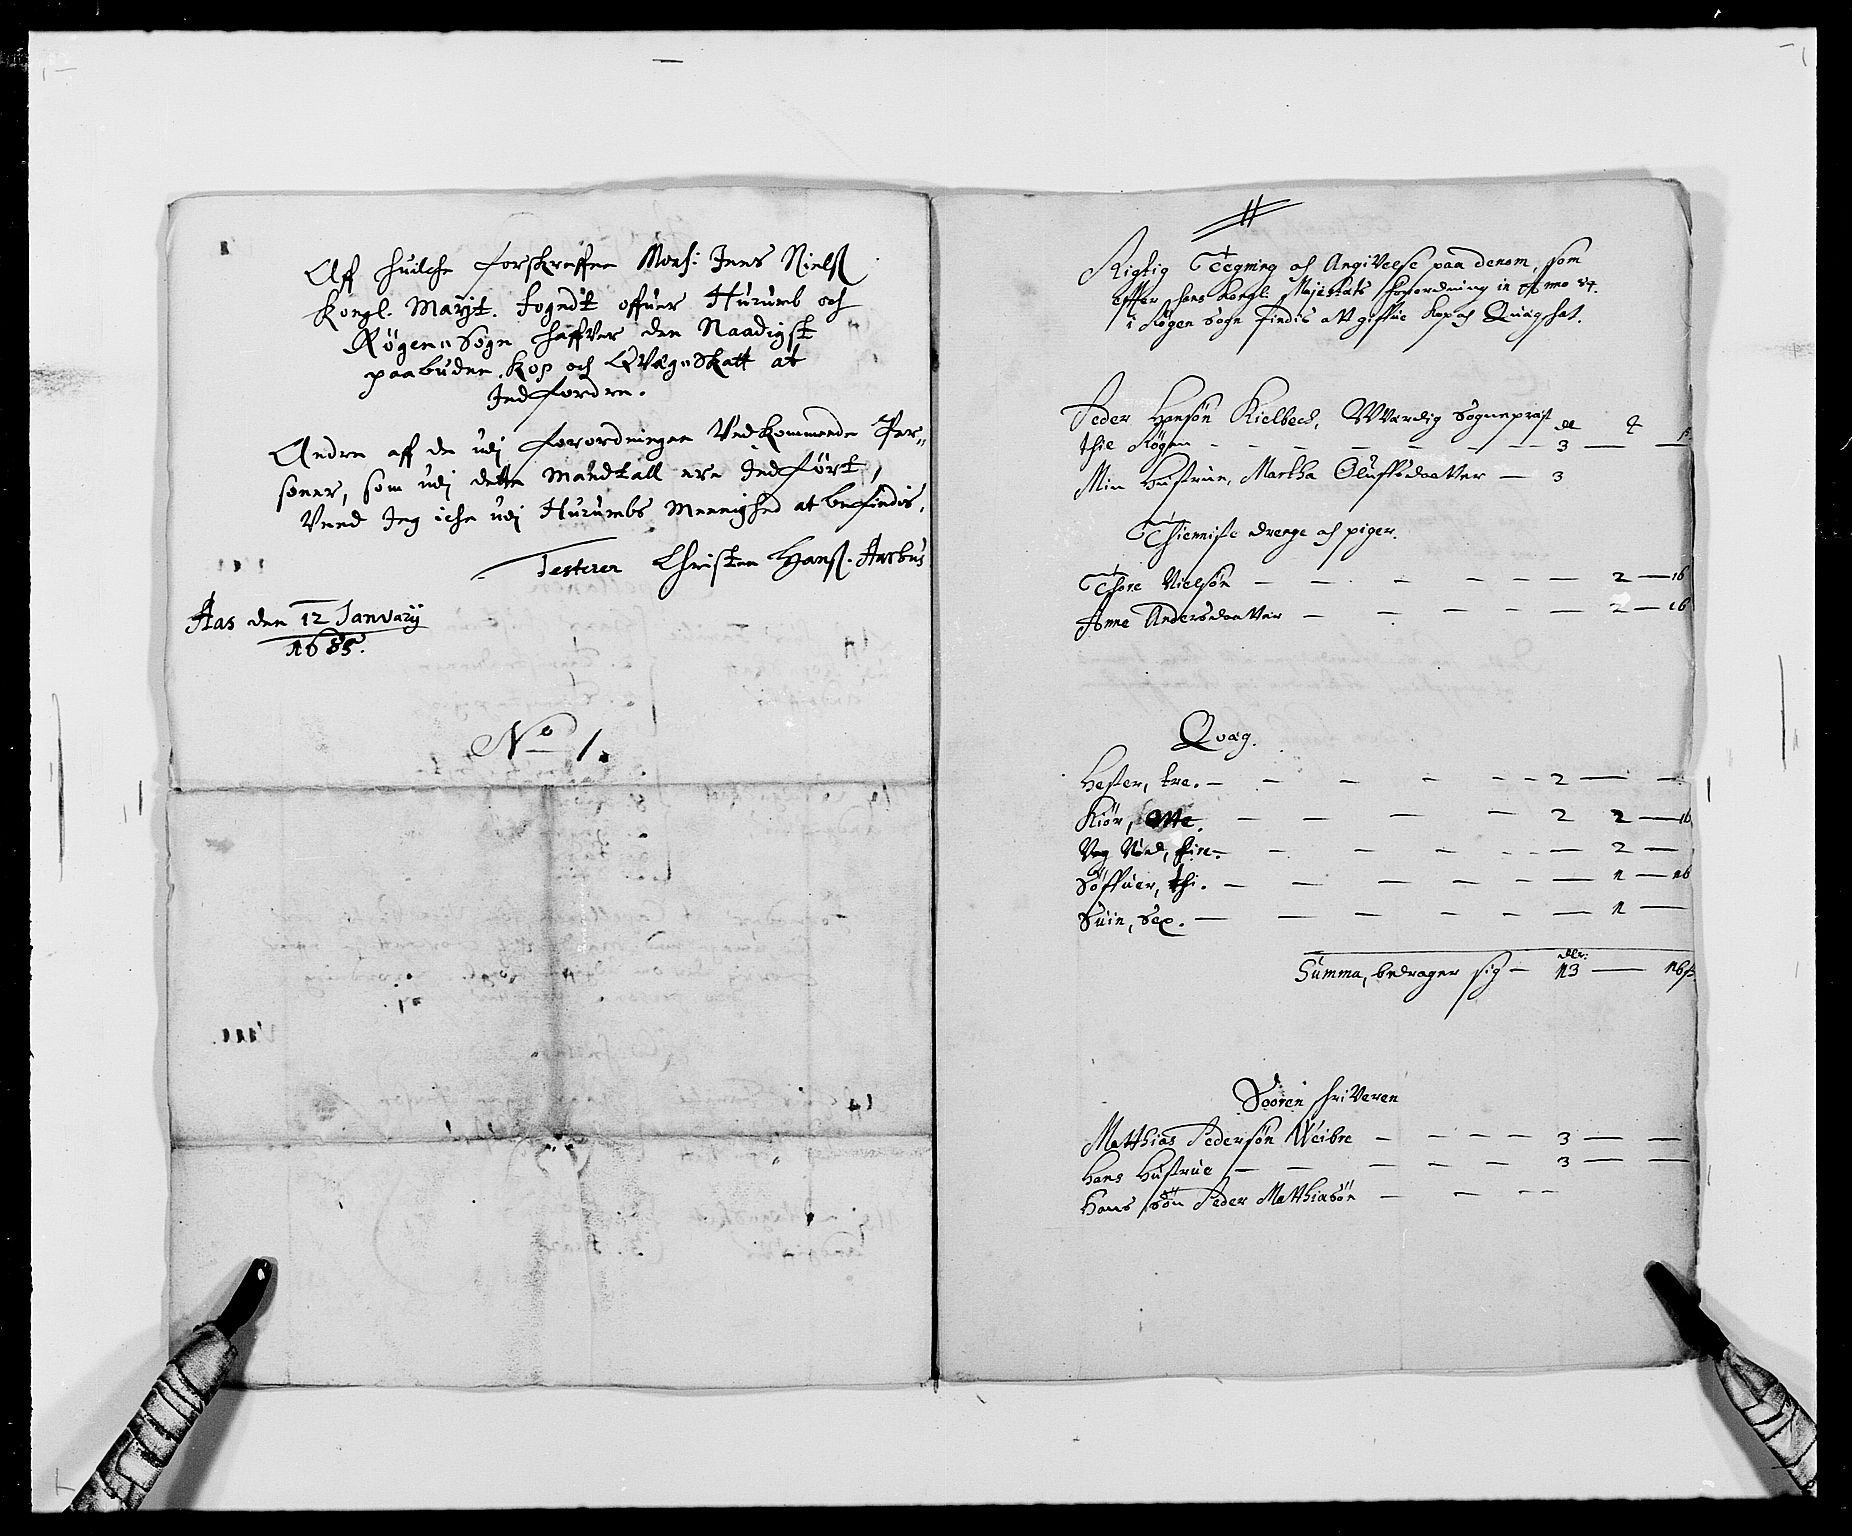 Aff huilche forskreffne Mons: Jens Nielß
Kongl. Mayt. Fogedt offuer Hurumb och
Røgen Sogn haffver den Naadigst
paabuden Kop och Qvæg Skatt at
Indfordre.
Andre aff de udj forordningen Vedkommende Per„
soner, som udj dette Mandtall ere Indført,
Veed Jeg iche udj Hurumbs Meenighed at befindis,
Testerer Christen Hanß. Aarhus
Aas den 12 January
1685.
No 1.
Rigtig Tegning och Angivelse paa denom, som
effter hans Kongl. Majestats forordning in Anno 84.
i Røgen Sogn findis att giffue Kop och Quægskat.
Peder Hansøn Kielbech, Wværdig Sognepræst
thil Røgen — 3 —
Min Hustrue, Martha Oluffsdaatter — 3
Thieniste drenge och piger.
Thore Nielsøn — 2 — 16
Anne Andersdaatter — 2 — 16
Qvæg.
Hester, tre. — 2 — —
Kiør, Otte. — 2 2 — 16
Ung Nød, fire. — 2 —
Søffuer, thi. — 1 — 16
Suin, Sex. — 1 —
Summa, bedrager sig — 13 — 16 ß
Sooren skriveren
Matthias Pedersøn Weibre — 3 — —
Hans Hustrue — 3 — —
Hans Søn Peder Matthiasøn —